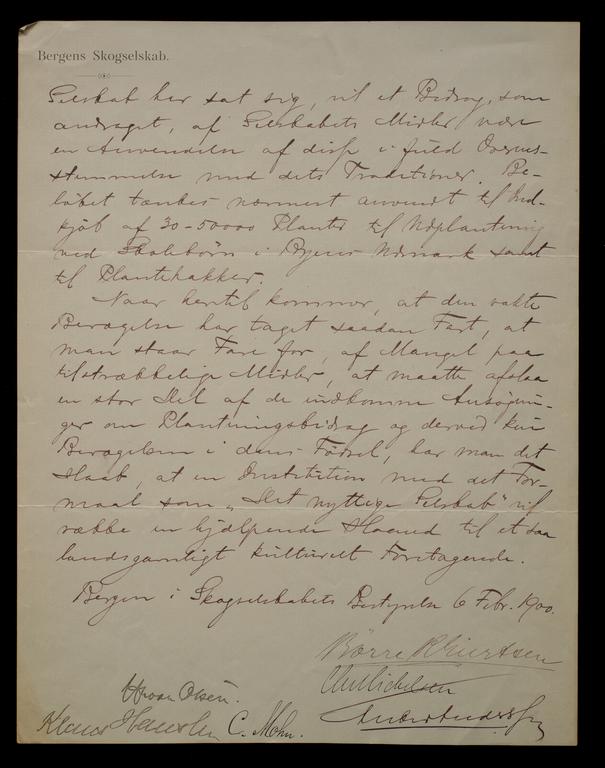 Bergens Skogselskab.
Selskab har sat sig, vil et Bidrag, som
andraget, af Selskabets Midler være
en Anvendelse af disse i fuld Overens-
stemmelse med dets Traditioner. Be-
løbet tænkes nærmest anvendt til Ind-
kjøb af 30-50000 Planter til Udplantning
ved Skolebørn i Byens Udmark samt
til Plantehakker.
Naar hertil kommer, at den vakte
Bevægelse har taget saadan Fart, at
man staar Fare for, af Mangel paa
tilstrækkelige Midler, at maatte afslaa
en stor Del af de indkomne Ansøgnin-
ger om Plantningsbidrag og derved kue
Bevægelsen i dens Fødsel, har man det
Haab, at en Institution med det For-
maal som „Det nyttige Selskab" vil
række en hjælpende Haand til et saa
landsgavnligt kulturelt Foretagende.
Bergen i Skogselskabets Bestyrelse 6 Febr. 1900.
Børre Giertsen
Chr Michelsen
Olsen.
Klaus Hanssen C. Mohn.